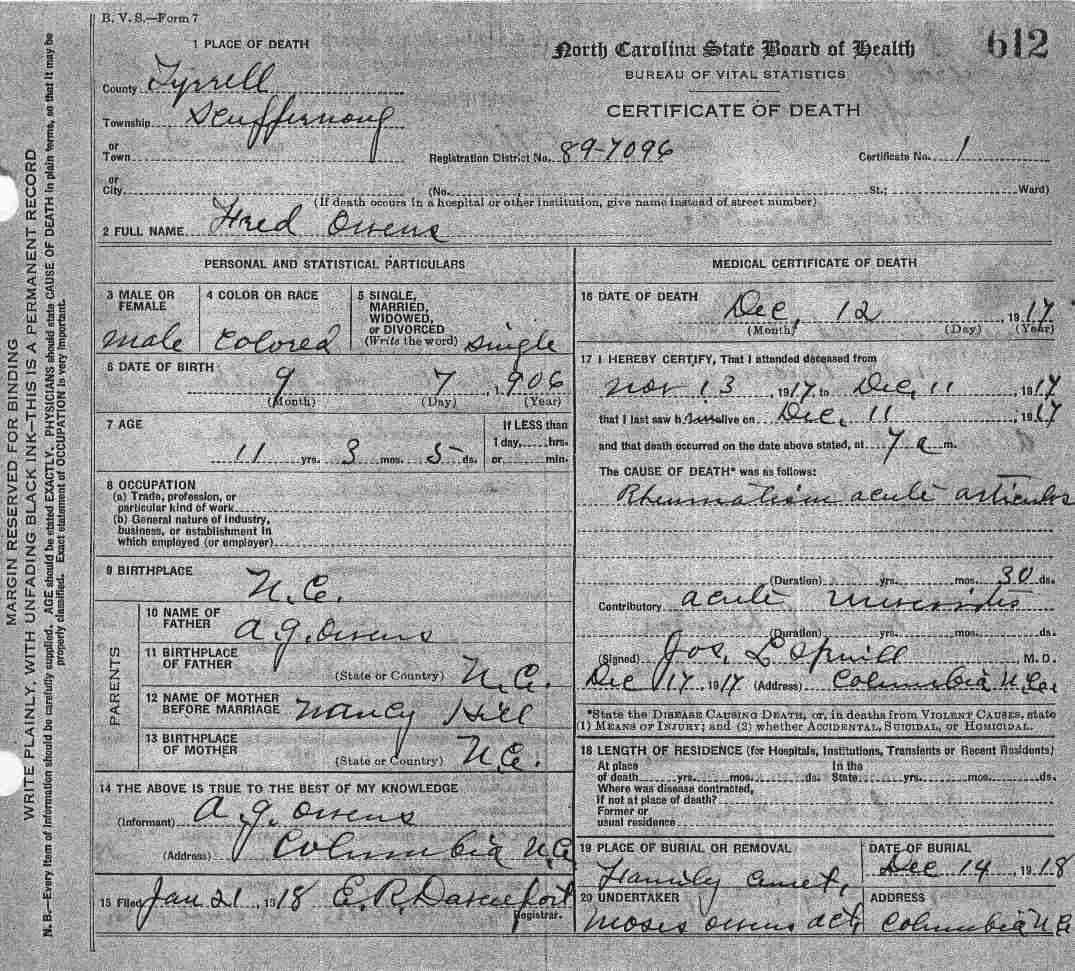 B. V. S.—Form 7
612
North Carolina State Board of Health
BUREAU OF VITAL STATISTICS
CERTIFICATE OF DEATH
1 PLACE OF DEATH
County Tyrrell
Township Scuffernong
or
Town
Registration District No. 89-7096
Certificate No. 1
or
City
(No. St.; Ward)
(If death occurs in a hospital or other institution, give name instead of street number)
2 FULL NAME Fred Owens
PERSONAL AND STATISTICAL PARTICULARS
3 MALE OR FEMALE male
4 COLOR OR RACE Colored
5 SINGLE, MARRIED, WIDOWED, or DIVORCED (Write the word) single
6 DATE OF BIRTH 9 7, 1906
(Month) (Day) (Year)
7 AGE
11 yrs. 3 mos. 5 ds.
If LESS than
1 day, hrs.
or min.
8 OCCUPATION
(a) Trade, profession, or
particular kind of work
(b) General nature of industry,
business, or establishment in
which employed (or employer)
9 BIRTHPLACE
N.C.
PARENTS
10 NAME OF FATHER A. G. Owens
11 BIRTHPLACE OF FATHER
(State or Country) N.C.
12 NAME OF MOTHER BEFORE MARRIAGE Nancy Hill
13 BIRTHPLACE OF MOTHER
(State or Country) N.C.
14 THE ABOVE IS TRUE TO THE BEST OF MY KNOWLEDGE
(Informant) A. G. Owens
(Address) Columbia N.C.
15 Filed Jan 21, 1918 E. R. Davenport
Registrar.
MEDICAL CERTIFICATE OF DEATH
16 DATE OF DEATH
Dec, 12 1917
(Month) (Day) (Year)
17 I HEREBY CERTIFY, That I attended deceased from
Nov 13, 1917, to Dec, 11 1917
that I last saw him alive on Dec, 11, 1917
and that death occurred on the date above stated, at 7 a m.
The CAUSE OF DEATH* was as follows:
Rheumatism acute articulos
(Duration) yrs. mos. 30 ds.
Contributory acute
(Duration) yrs. mos. ds.
(Signed) Jos. L Spruill M. D.
Dec 17, 1917 (Address) Columbia N.C.
*State the DISEASE CAUSING DEATH, or, in deaths from VIOLENT CAUSES, state
(1) MEANS OF INJURY; and (2) whether ACCIDENTAL, SUICIDAL, or HOMICIDAL.
18 LENGTH OF RESIDENCE (for Hospitals, Institutions, Transients or Recent Residents)
At place In the
of death yrs. mos. ds. State yrs. mos. ds.
Where was disease contracted,
If not at place of death?
Former or
usual residence
19 PLACE OF BURIAL OR REMOVAL
Family cemet,
DATE OF BURIAL
Dec 14, 1918
20 UNDERTAKER
Moses Owens act,
ADDRESS
Columbia N.C.
MARGIN RESERVED FOR BINDING
WRITE PLAINLY, WITH UNFADING BLACK INK—THIS IS A PERMANENT RECORD
N. B.—Every item of information should be carefully supplied. AGE should be stated EXACTLY. PHYSICIANS should state CAUSE OF DEATH in plain terms, so that it may be
properly classified. Exact statement of OCCUPATION is very important.